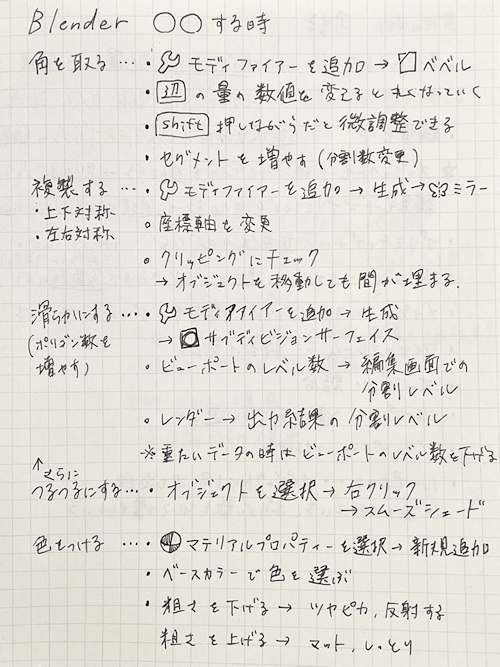 Blender ○○する時
角を取る … ・モディファイアーを追加 → ベベル
・辺 の量の数値を変えると丸くなっていく
・shift 押しながらだと微調整できる
・セグメントを増やす(分割数変更)
複製する … ・モディファイアーを追加 → 生成 → ミラー
・上下対称
・左右対称
・座標軸を変更
・クリッピングにチェック
→ オブジェクトを移動しても間が埋まる.
滑らかにする … ・モディファイアーを追加 → 生成
(ポリゴン数を増やす)
→ サブディビジョンサーフェイス
・ビューポートのレベル数 → 編集画面での分割レベル
・レンダー → 出力結果の分割レベル
※重たいデータの時はビューポートのレベル数を下げる
↑さらに
つるつるにする … ・オブジェクトを選択 → 右クリック
→ スムーズシェード
色をつける … ・マテリアルプロパティーを選択 → 新規追加
・ベースカラーで色を選ぶ
・粗さを下げる → ツヤピカ, 反射する
粗さを上げる → マット, しっとり